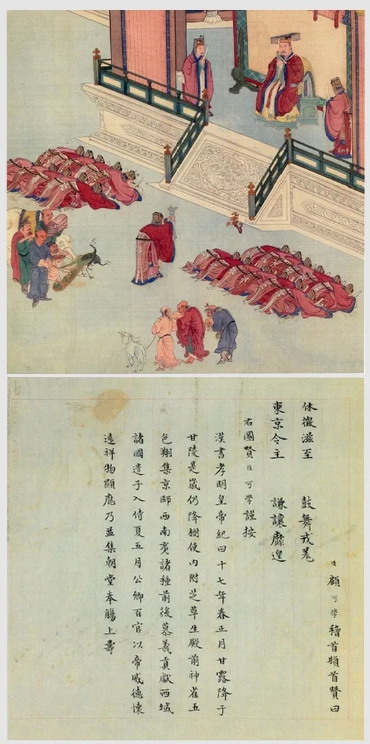 臣顧可學稽首頓首贊曰
休徵滋至 鼓舞戎羌
東京令主 謙讓靡遑
右圖賢臣可學謹按
漢書孝明皇帝紀曰十七年春正月甘露降于
甘陵是歲仍降樹使內附芝草生殿前神雀五
色翔集京師西南夷諸種前後慕義貢獻西域
諸國遣子入侍夏五月公卿百官以帝威德懷
遠祥物顯應乃並集朝堂奉觴上壽